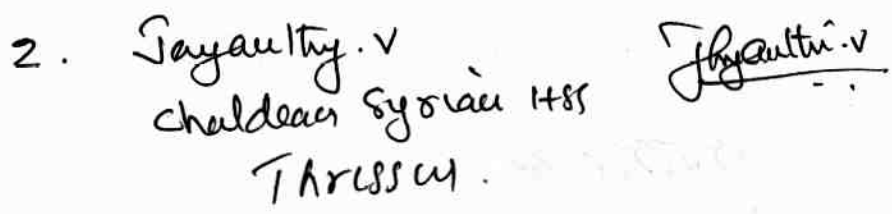 2. Jayanthy.V Jhyanthi.V
Chaldean Syrian HSS
Thrissur.